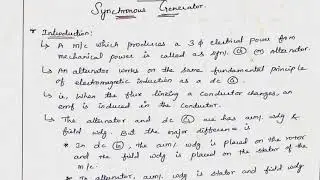 Synchronous Generator.
* Introduction:
↳ A m/c which produces a 3 ϕ electrical power from
mechanical power is called as syn. Ⓖ or alternator.
↳ An alternator works on the same fundamental principle
of electromagnetic induction as a dc Ⓖ
↳ ie, when the flux linking a conductor changes, an
emf is induced in the conductor.
↳ The alternator and dc Ⓖ are has arm. wdg &
field wdg. But the major difference is
* In dc Ⓖ, the arm. wdg is placed on the rotor
and the field wdg is placed on the stator of the
m/c.
* In alternator, arm. wdg is stator and field wdg